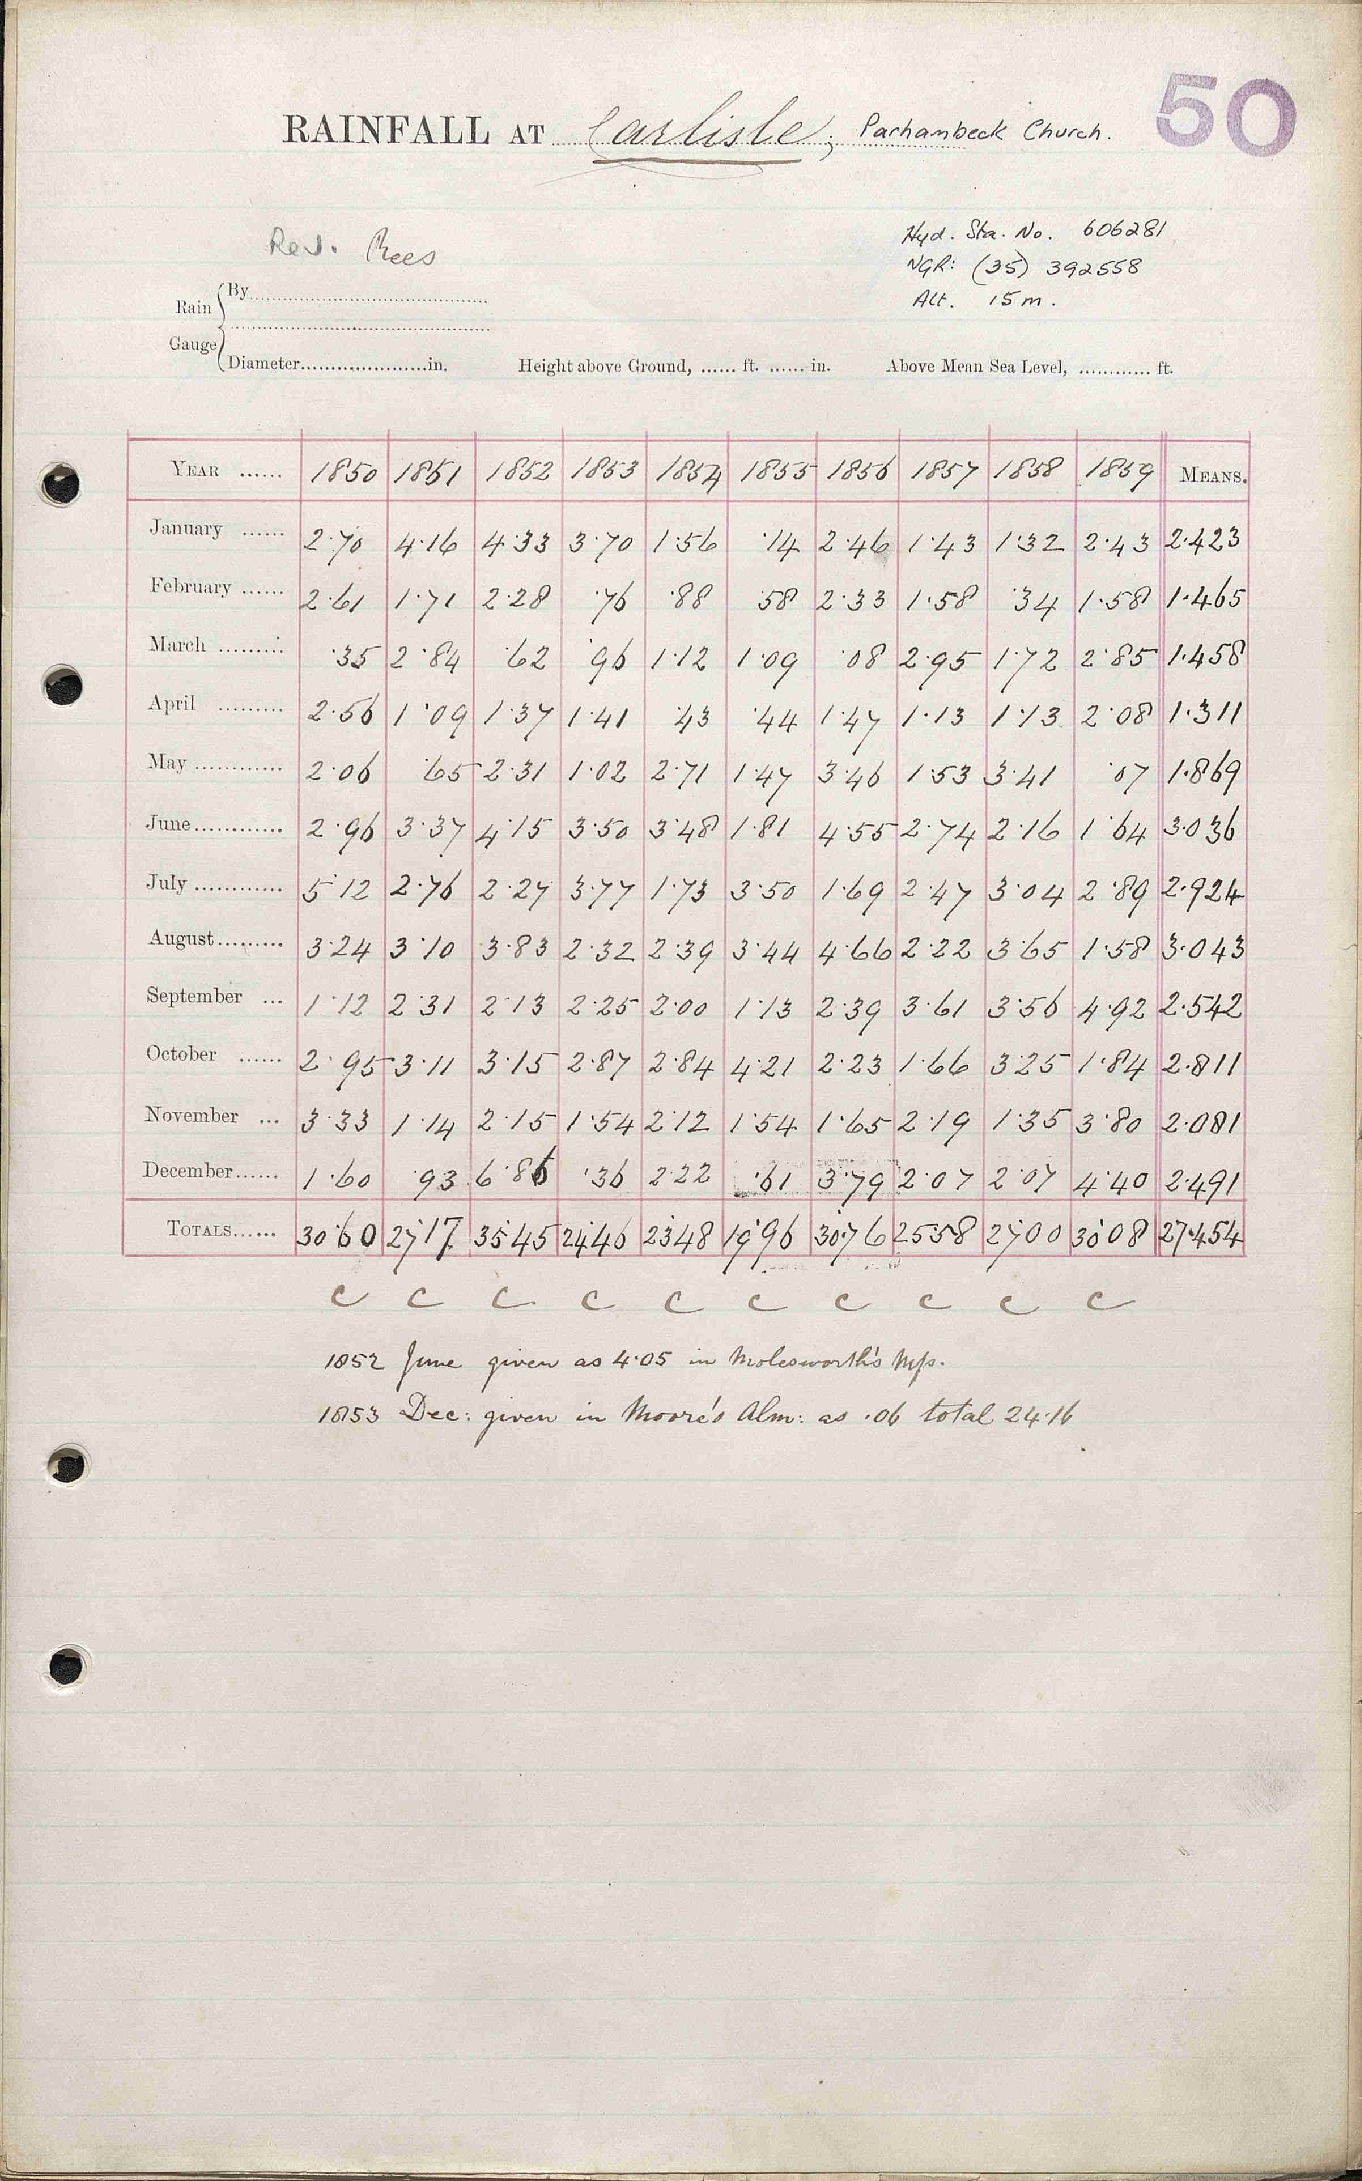 50
RAINFALL AT Carlisle; Parhambeck Church.
Rev. Rees
Hyd. Sta. No. 606281
NGR: (35) 392558
Alt. 15m.
Rain Gauge { By........
Diameter........in. Height above Ground, ...... ft. ...... in. Above Mean Sea Level, ............ ft.
YEAR ...... 1850 1851 1852 1853 1854 1855 1856 1857 1858 1859 MEANS.
January ...... 2.70 4.16 4.33 3.70 1.56 .14 2.46 1.43 1.32 2.43 2.423
February ...... 2.61 1.71 2.28 .76 .88 .58 2.33 1.58 .34 1.58 1.465
March ......... .35 2.84 .62 .96 1.12 1.09 .08 2.95 1.72 2.85 1.458
April ......... 2.56 1.09 1.37 1.41 .43 .44 1.47 1.13 1.13 2.08 1.311
May ............ 2.06 .65 2.31 1.02 2.71 1.47 3.46 1.53 3.41 .07 1.869
June............ 2.96 3.37 4.15 3.50 3.48 1.81 4.55 2.74 2.16 1.64 3.036
July ............ 5.12 2.76 2.27 3.77 1.73 3.50 1.69 2.47 3.04 2.89 2.924
August......... 3.24 3.10 3.83 2.32 2.39 3.44 4.66 2.22 3.65 1.58 3.043
September ... 1.12 2.31 2.13 2.25 2.00 1.13 2.39 3.61 3.56 4.92 2.542
October ...... 2.95 3.11 3.15 2.87 2.84 4.21 2.23 1.66 3.25 1.84 2.811
November ... 3.33 1.14 2.15 1.54 2.12 1.54 1.65 2.19 1.35 3.80 2.081
December...... 1.60 .93 6.86 .36 2.22 .61 3.79 2.07 2.07 4.40 2.491
TOTALS...... 30.60 27.17 35.45 24.46 23.48 19.96 30.76 25.58 27.00 30.08 27.454
c c c c c c c c c c
1852 June given as 4.05 in Molesworth's Mss.
1853 Dec: given in Moore's Alm: as .06 total 24.16